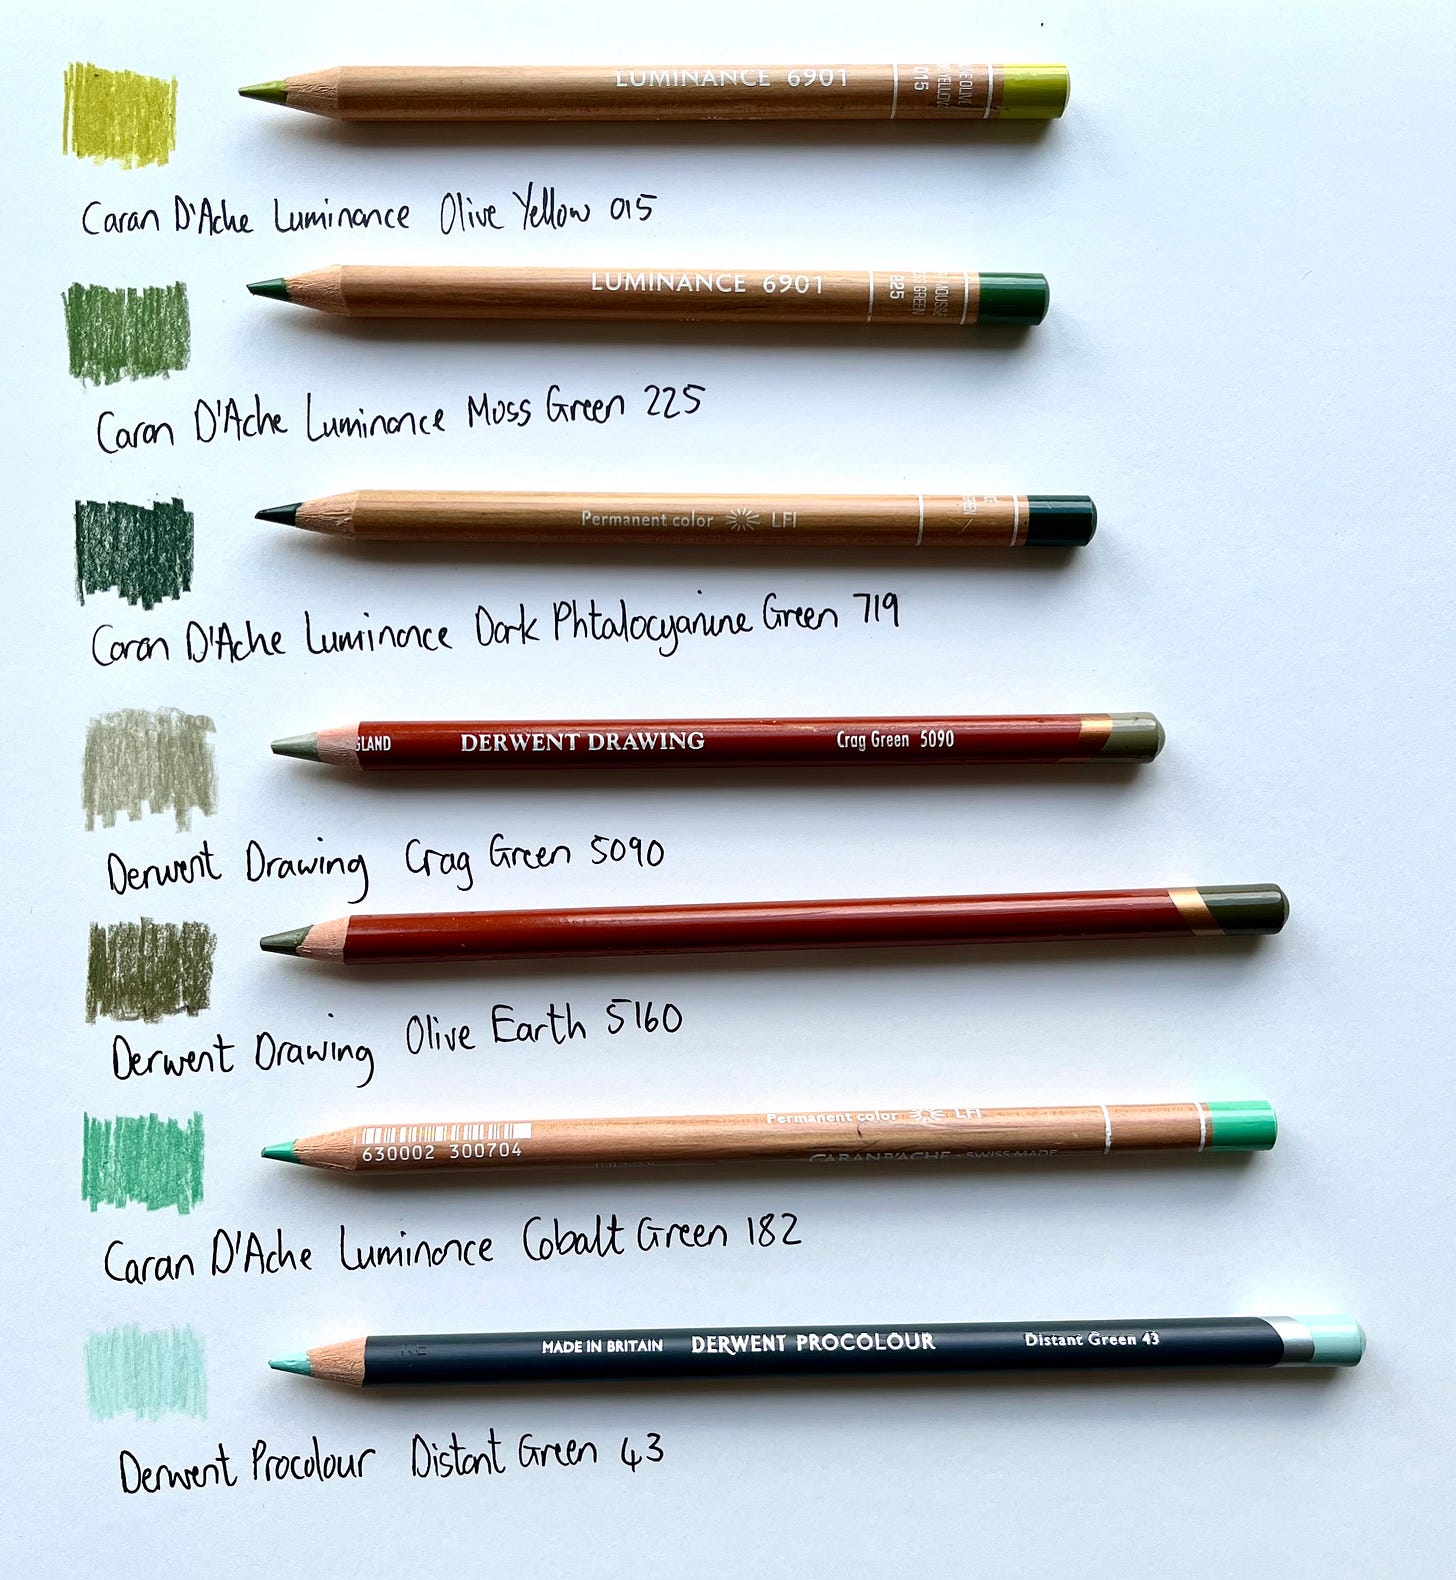 LUMINANCE 6901 015
Caran D'Ache Luminance Olive Yellow 015
LUMINANCE 6901 225
Caran D'Ache Luminance Moss Green 225
Permanent color LFI
Caran D'Ache Luminance Dark Phtalocyanine Green 719
DERWENT DRAWING Crag Green 5090
Derwent Drawing Crag Green 5090
Derwent Drawing Olive Earth 5160
Permanent color LFI
630002 300704 CARAN D'ACHE - SWISS MADE
Caran D'Ache Luminance Cobalt Green 182
MADE IN BRITAIN DERWENT PROCOLOUR Distant Green 43
Derwent Procolour Distant Green 43